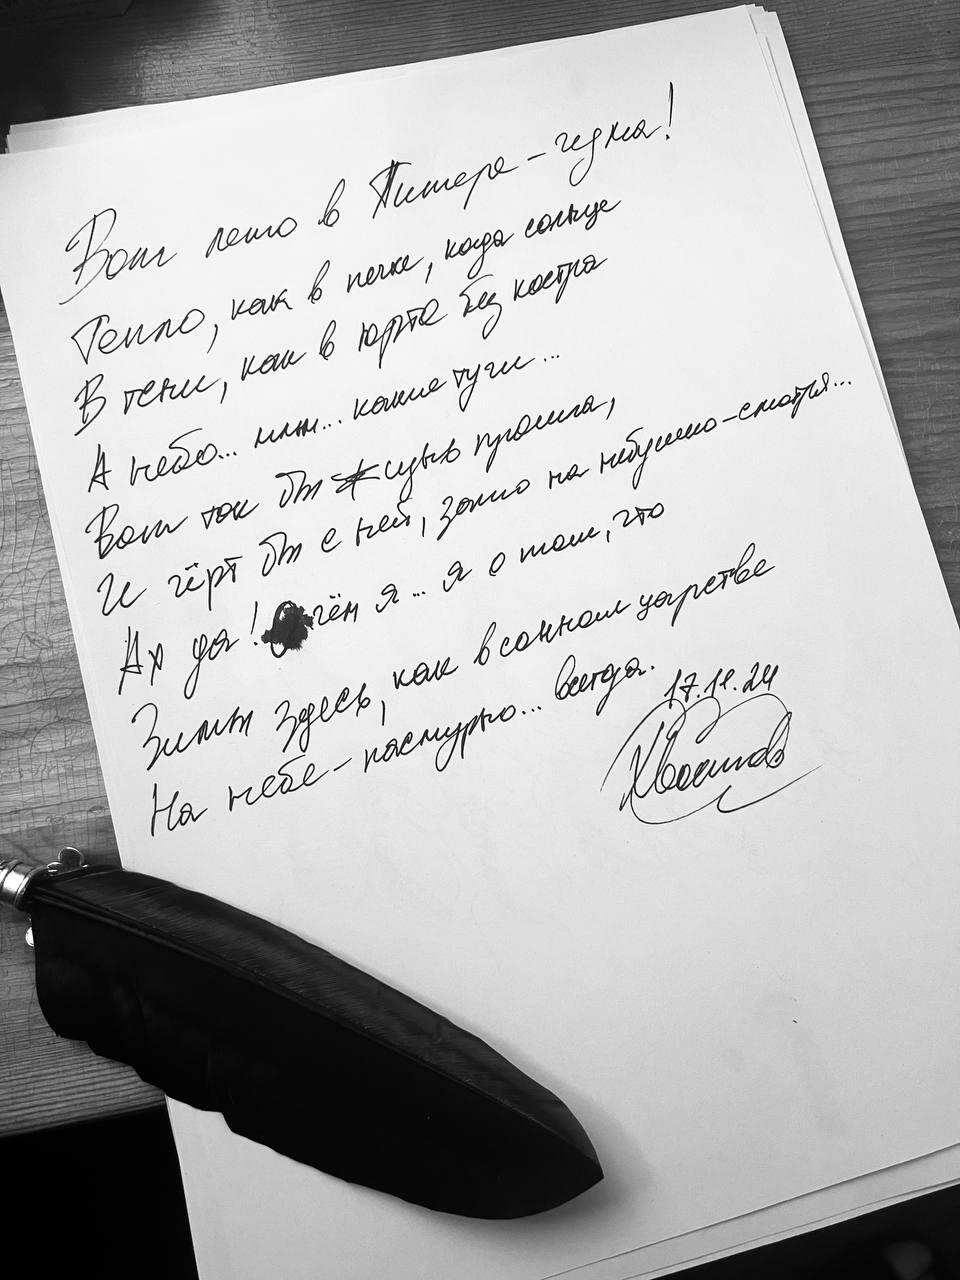 Вот лето в Питере - чума!
Тепло, как в печке, когда солнце
В тени, как в юрте без костра
А небо... ммм... какие тучи...
Вот так бы жизнь прошла,
И чёрт бы с ней, зато на небушко-смотря...
Ах да! О чём я... я о том, что
Зимы здесь, как в сонном царстве
На небе - пасмурно... всегда.
17.11.24